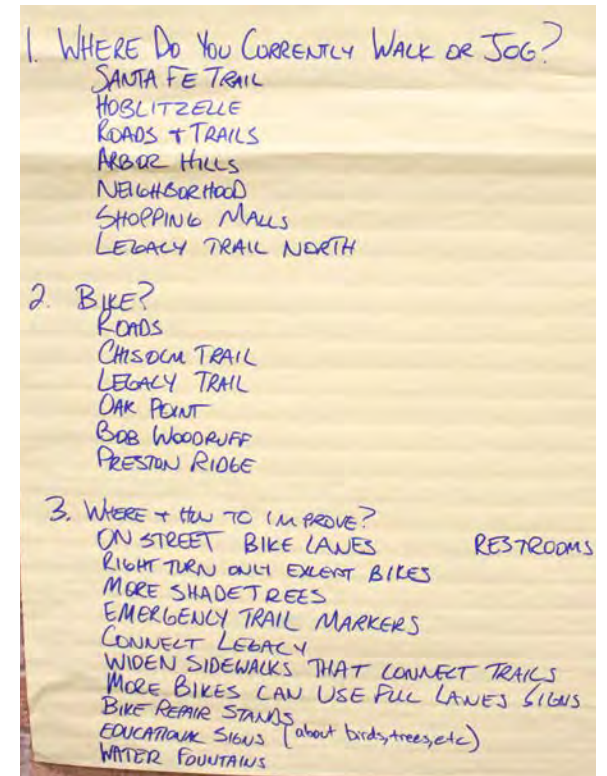 1. WHERE DO YOU CURRENTLY WALK OR JOG?
SANTA FE TRAIL
HOBLITZELLE
ROADS + TRAILS
ARBOR HILLS
NEIGHBORHOOD
SHOPPING MALLS
LEGACY TRAIL NORTH
2. BIKE?
ROADS
CHISOLM TRAIL
LEGACY TRAIL
OAK POINT
BOB WOODRUFF
PRESTON RIDGE
3. WHERE + HOW TO IMPROVE?
ON STREET BIKE LANES RESTROOMS
RIGHT TURN ONLY EXCEPT BIKES
MORE SHADE TREES
EMERGENCY TRAIL MARKERS
CONNECT LEGACY
WIDEN SIDEWALKS THAT CONNECT TRAILS
MORE BIKES CAN USE FULL LANES SIGNS
BIKE REPAIR STANDS
EDUCATIONAL SIGNS (about birds, trees, etc)
WATER FOUNTAINS